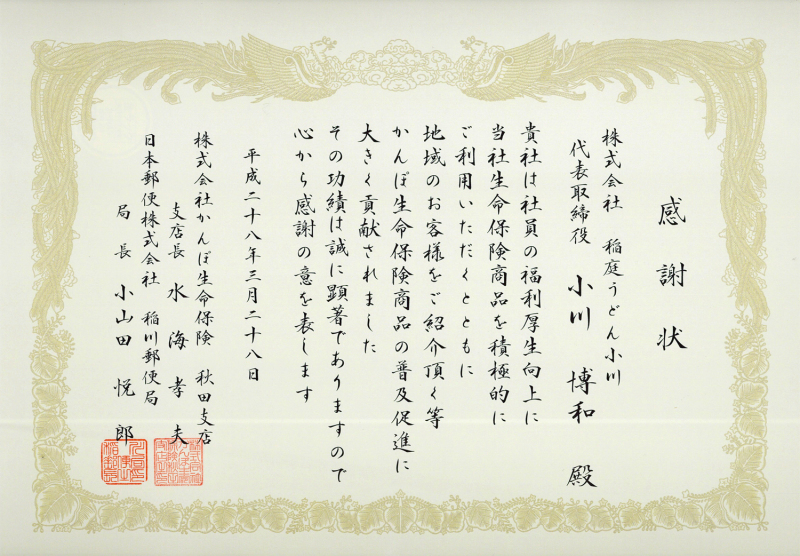 感謝状
株式会社 稲庭うどん小川
代表取締役 小川 博和 殿
貴社は社員の福利厚生向上に
当社生命保険商品を積極的に
ご利用いただくとともに
地域のお客様をご紹介頂く等
かんぽ生命保険商品の普及促進に
大きく貢献されました
その功績は誠に顕著でありますので
心から感謝の意を表します
平成二十八年三月二十八日
株式会社かんぽ生命保険 秋田支店
支店長 水海孝夫
日本郵便株式会社 稲川郵便局
局長 小山田悦郎